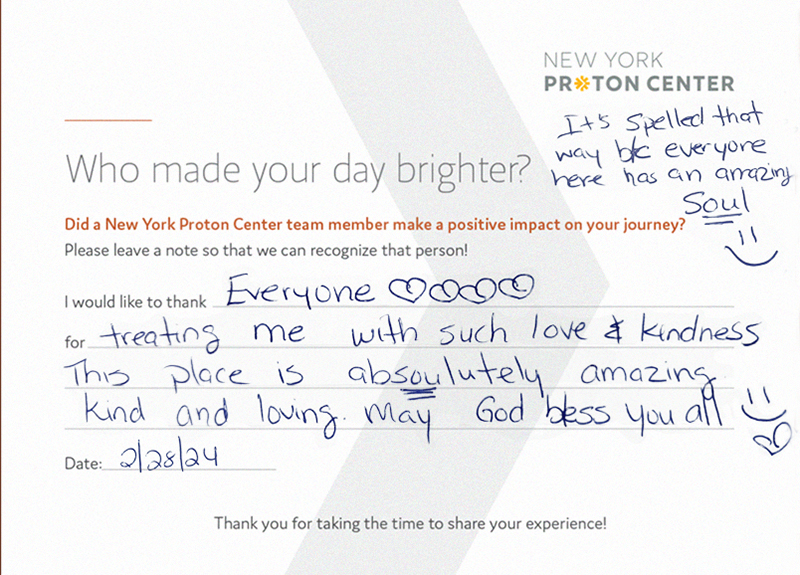 NEW YORK
PROTON CENTER
It's spelled that
way b/c everyone
here has an amazing
Soul
Who made your day brighter?
Did a New York Proton Center team member make a positive impact on your journey?
Please leave a note so that we can recognize that person!
I would like to thank Everyone
for treating me with such love & kindness
This place is absoulutely amazing
kind and loving. May God bless you all
Date: 2/28/24
Thank you for taking the time to share your experience!